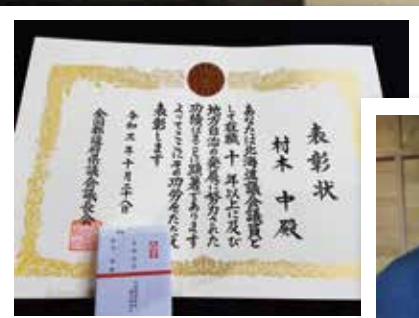 表彰状
村木 中 殿
あなたは北海道議会議員と
して在職十年以上に及び
地方自治の発展に努力された
功績はまことに顕著であります
よってここにその功労をたたえ
表彰します
令和三年十月二十八日
全国都道府県議会議長会